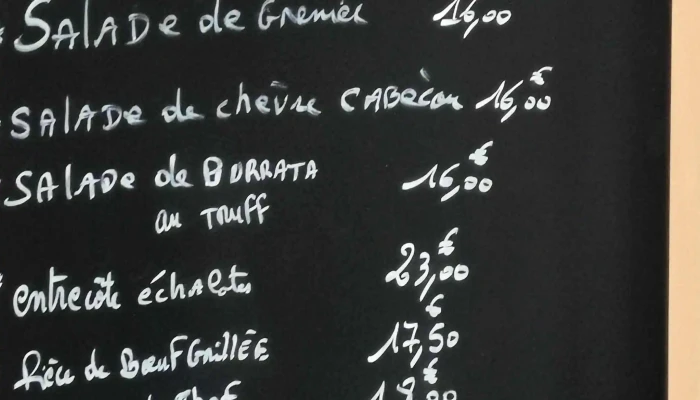 SALADE de Gremier 16,00
SALADE de chèvre CABècou 16,00 €
SALADE de BURRATA 16,00 €
au Truff
entrecôte échalotes 23,00 €
Pièce de Bœuf GRILLÉE 17,50 €